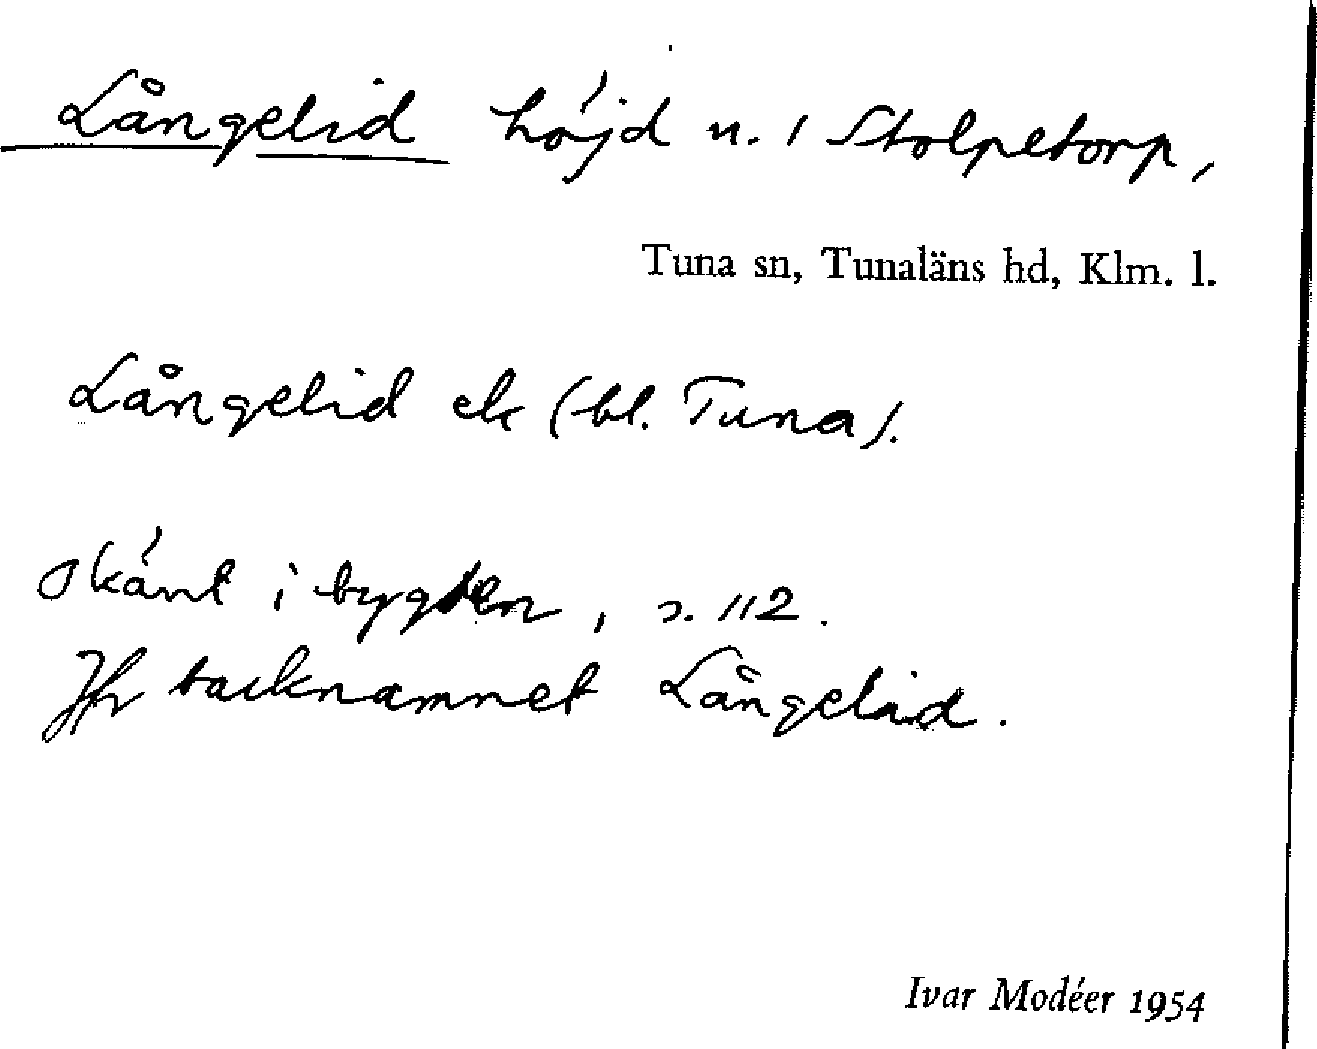 Långelid höjd n. / Stolpetorp,
Tuna sn, Tunaläns hd, Klm. l.
Långelid ek (bl. Tuna).
okänt i bygden, s. 112.
Jfr backnamnet Långelid.
Ivar Modéer 1954